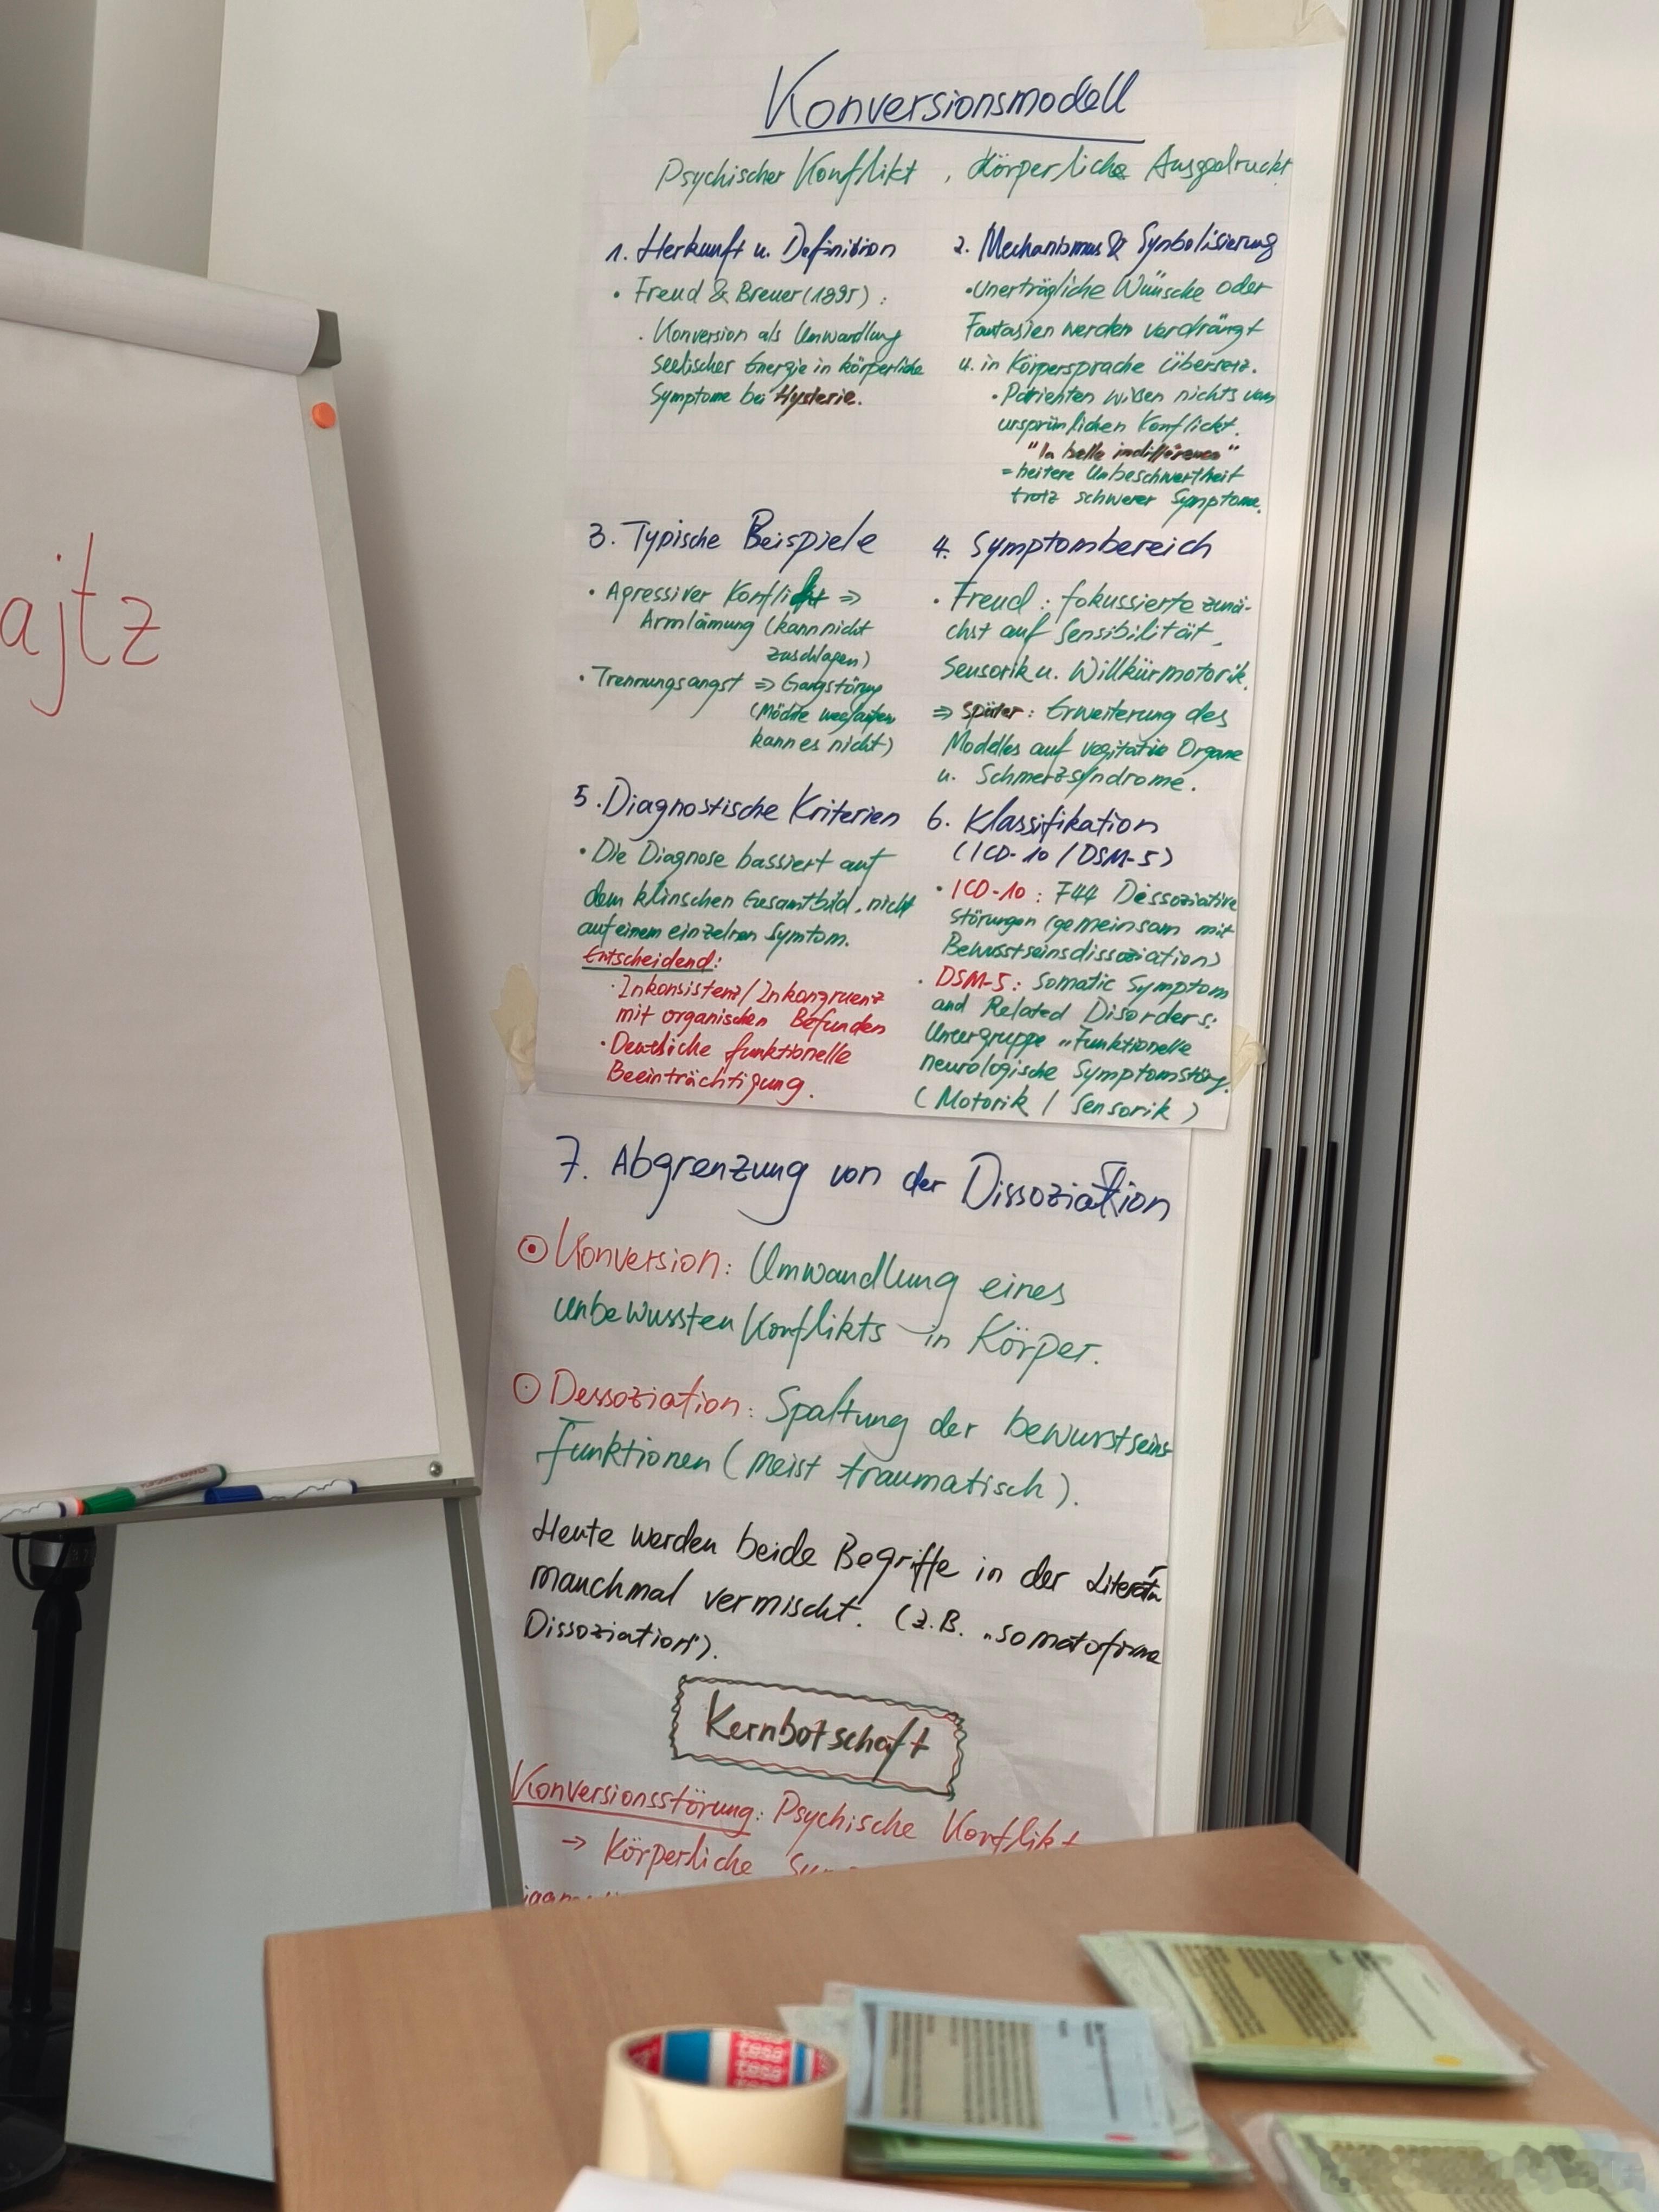 Konversionsmodell
Psychischer Konflikt, Körperliche Ausgedruckt
1. Herkunft u. Definition
• Freud & Breuer (1895):
. Konversion als Umwandlung
seelischer Energie in körperliche
Symptome bei Hysterie.
2. Mechanismus & Synbolisierung
• Unerträgliche Wünsche oder
Fantasien werden verdrängt
u. in Körpersprache übersetz.
• Patienten wissen nichts vom
ursprünlichen Konflickt.
"la belle indifférence"
= heitere Unbeschwertheit
trotz schwerer Symptome.
3. Typische Beispiele
• Agressiver Konflikt ⇒
Armlämung (kann nicht
zuschlagen)
• Trennungsangst ⇒ Gangstörung
(Möchte weglaufen
kann es nicht)
4. Symptombereich
• Freud: fokussierte zunä-
chst auf Sensibilität,
Sensorik u. Willkürmotorik.
⇒ Später: Erweiterung des
Modelles auf vegitative Organe
u. Schmerzsyndrome.
5. Diagnostische Kriterien
• Die Diagnose bassiert auf
dem klinschen Gesamtbild, nicht
auf einem einzelnen Symtom.
Entscheidend:
• Inkonsistenz/Inkongruenz
mit organischen Befunden
• Deutliche funktionelle
Beeinträchtigung.
6. Klassifikation
(ICD-10 / DSM-5)
• ICD-10: F44 Dessoziative
Störungen (gemeinsam mit
Bewusstseinsdissoziation)
• DSM-5: Somatic Symptom
and Related Disorders:
Untergruppe „Funktionelle
neurologische Symptomstörg.
(Motorik / Sensorik)
7. Abgrenzung von der Dissoziation
Konversion: Umwandlung eines
unbewussten Konflikts in Körper.
Dessoziation: Spaltung der bewusstseins-
funktionen (meist traumatisch).
Heute werden beide Begriffe in der
manchmal vermischt. (z.B. „somatoforme
Dissoziation").
Kernbotschaft
Konversionsstörung: Psychische Konflikt
→ Körperliche
ajtz
tesa
tesa
tesa